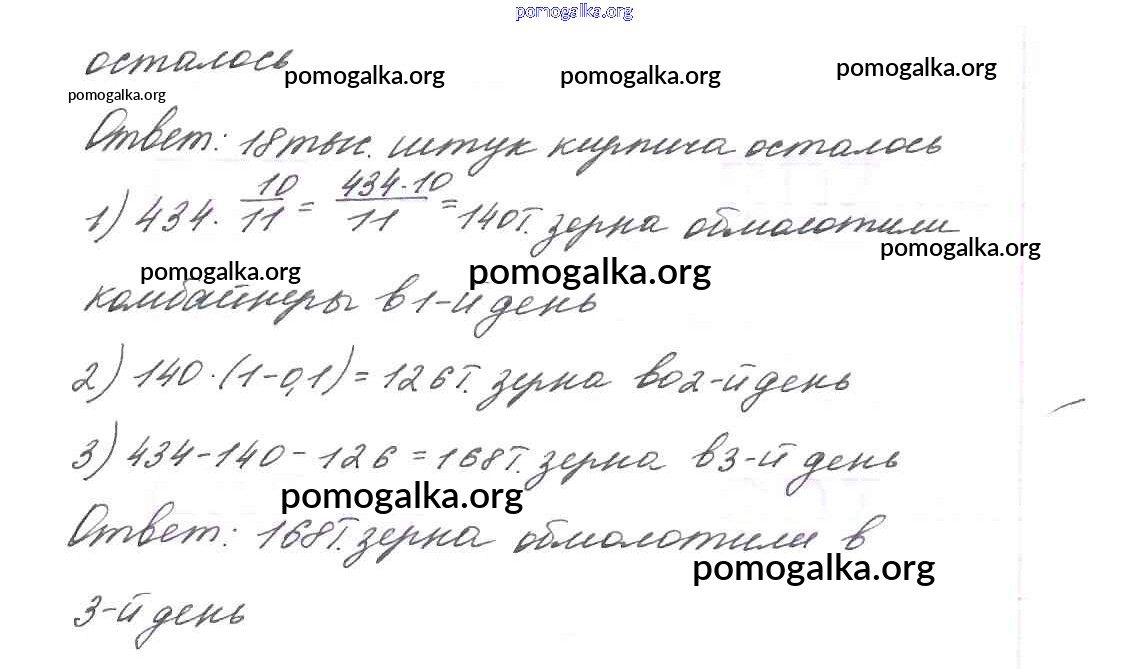 pomogalka.org
осталось
pomogalka.org pomogalka.org pomogalka.org
pomogalka.org
Ответ: 18 тыс. штук кирпича осталось
1) 434 · 10/11 = 434·10/11 = 140т. зерна обмолотили
pomogalka.org
pomogalka.org pomogalka.org
комбайнеры в 1-й день
2) 140·(1-0,1)=126т. зерна во 2-й день
3) 434-140-126=168т. зерна в 3-й день
pomogalka.org
Ответ: 168т. зерна обмолотили в
pomogalka.org
3-й день